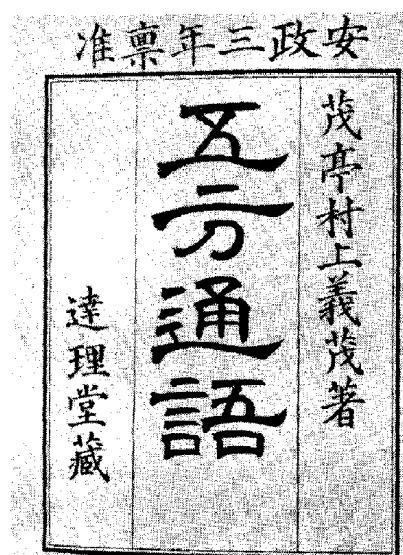 安政三年稟准
茂亭村上義茂著
五方通語
達理堂藏